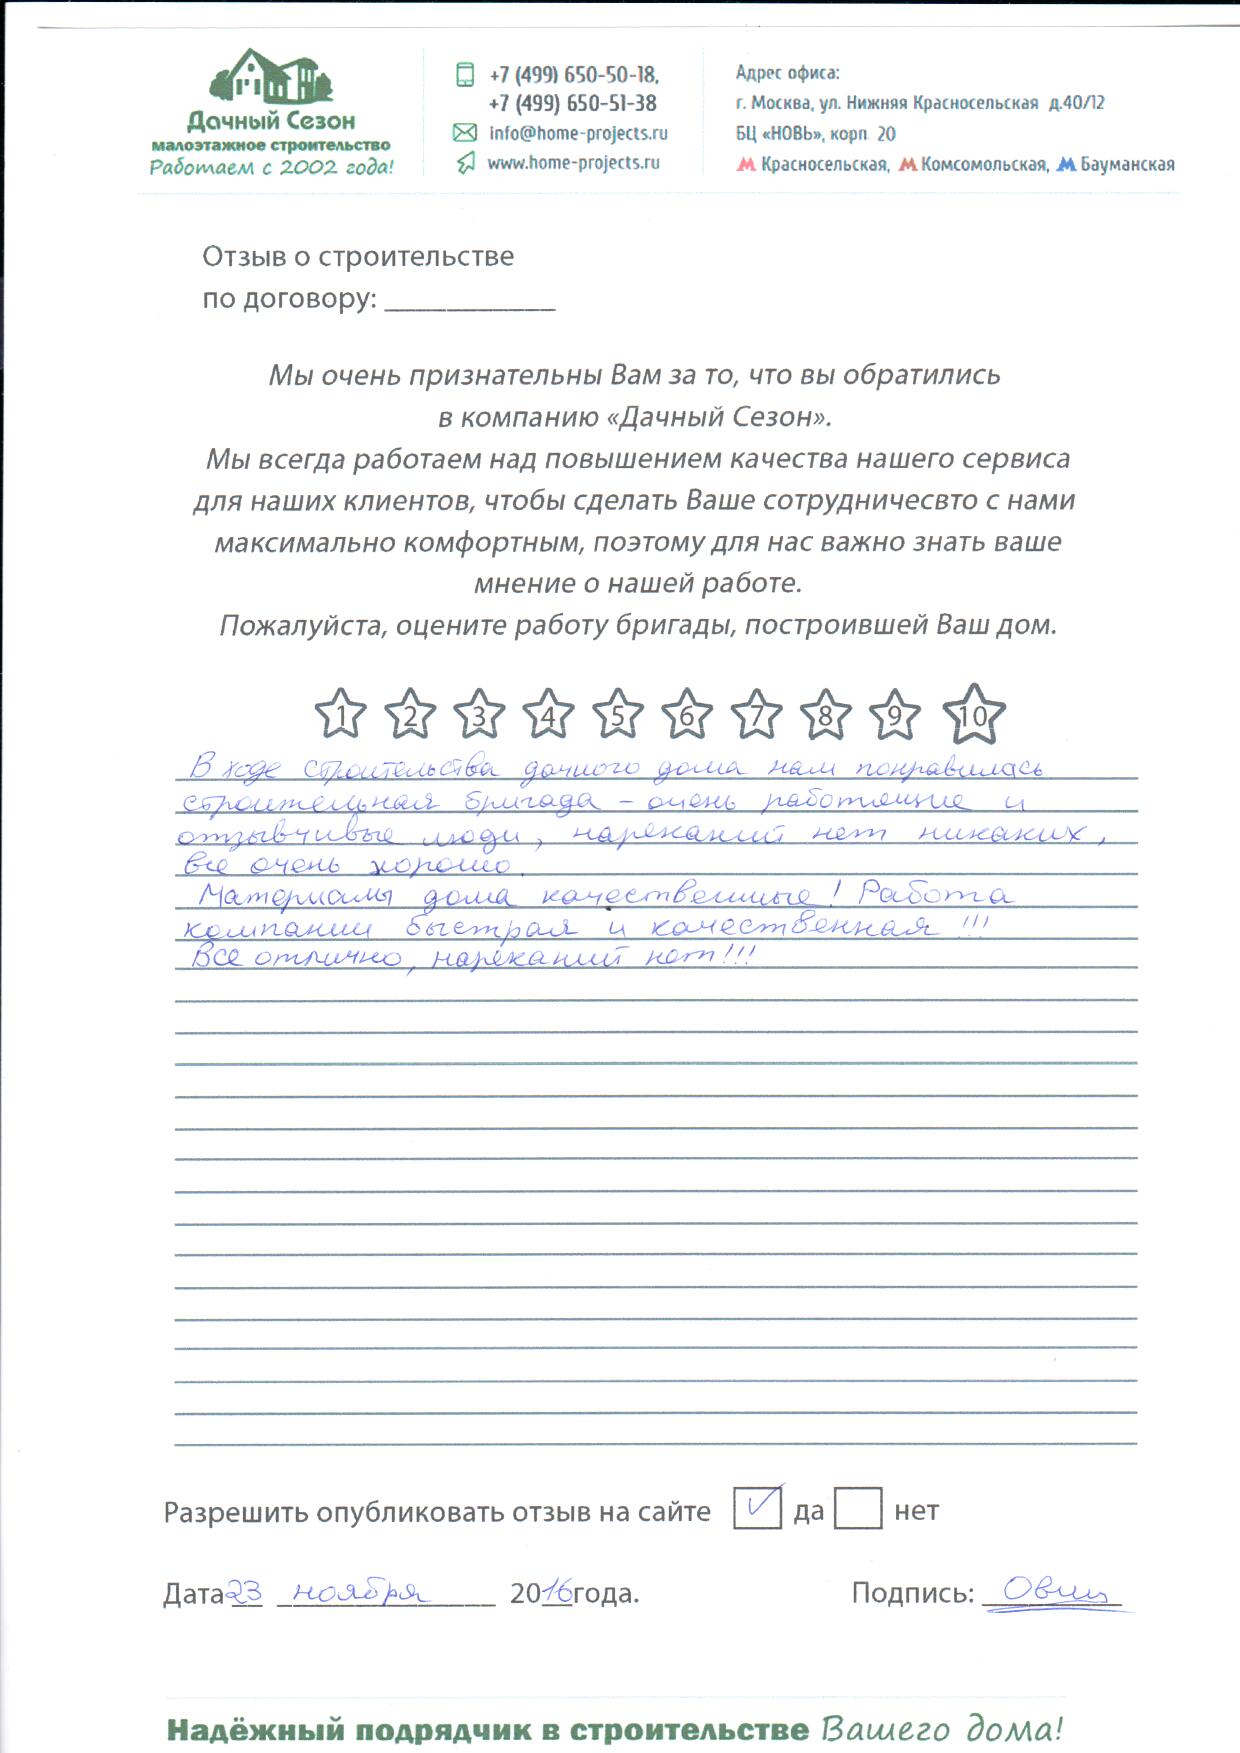 Дачный Сезон
малоэтажное строительство
Работаем с 2002 года!
+7 (499) 650-50-18,
+7 (499) 650-51-38
info@home-projects.ru
www.home-projects.ru
Адрес офиса:
г. Москва, ул. Нижняя Красносельская д.40/12
БЦ «НОВЬ», корп. 20
Красносельская, Комсомольская, Бауманская
Отзыв о строительстве
по договору: ____________
Мы очень признательны Вам за то, что вы обратились
в компанию «Дачный Сезон».
Мы всегда работаем над повышением качества нашего сервиса
для наших клиентов, чтобы сделать Ваше сотрудничесвто с нами
максимально комфортным, поэтому для нас важно знать ваше
мнение о нашей работе.
Пожалуйста, оцените работу бригады, построившей Ваш дом.
1 2 3 4 5 6 7 8 9 10
В ходе строительства дачного дома нам понравилась
строительная бригада – очень работящие и
отзывчивые люди, нареканий нет никаких,
все очень хорошо.
Материалы дома качественные! Работа
компании быстрая и качественная !!!
Все отлично, нареканий нет!!!
Разрешить опубликовать отзыв на сайте да нет
Дата 23 ноября 2016 года. Подпись:
Надёжный подрядчик в строительстве Вашего дома!